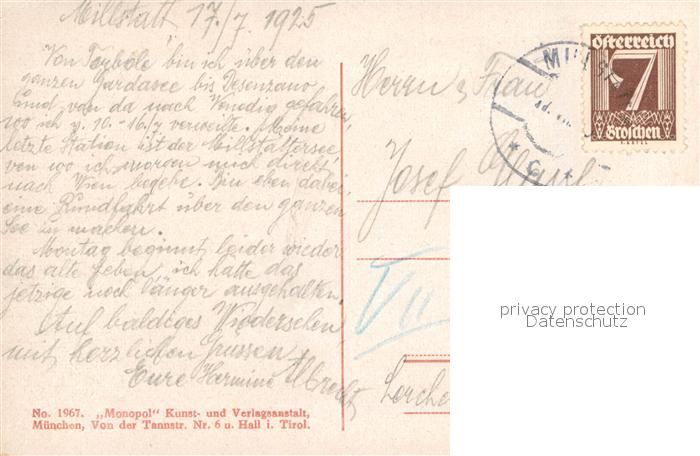 Millstatt 17./7. 1925
Von Torbole bin ich über den
ganzen Gardasee bis Desenzano
und von da nach Venedig gefahren,
wo ich v. 10.-16./7 verweilte. Meine
letzte Station ist der Millstättersee
von wo ich morgen mich direkt
nach Wien begebe. Bin eben dabei
eine Rundfahrt über den ganzen
See zu machen.
Montag beginnt leider wieder
das alte Leben, ich hätte das
jetzige noch länger ausgehalten.
Auf baldiges Wiedersehen
mit herzlichen Grüssen
Eure Hermine Albrecht
No. 1967. „Monopol" Kunst- und Verlagsanstalt,
München, Von der Tannstr. Nr. 6 u. Hall i. Tirol.
Herrn u. Frau
Josef
VII
Lerche
Österreich
7
Groschen
MILLST
privacy protection
Datenschutz